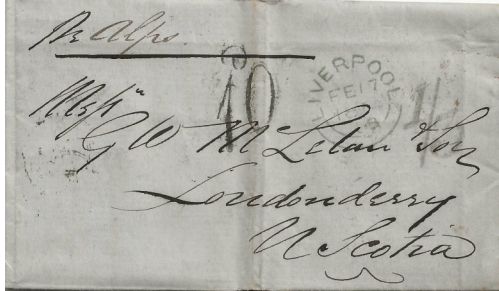 Pr Alps
10
LIVERPOOL
FE 17
Messrs
G W McLelan & Son
Londonderry
N Scotia